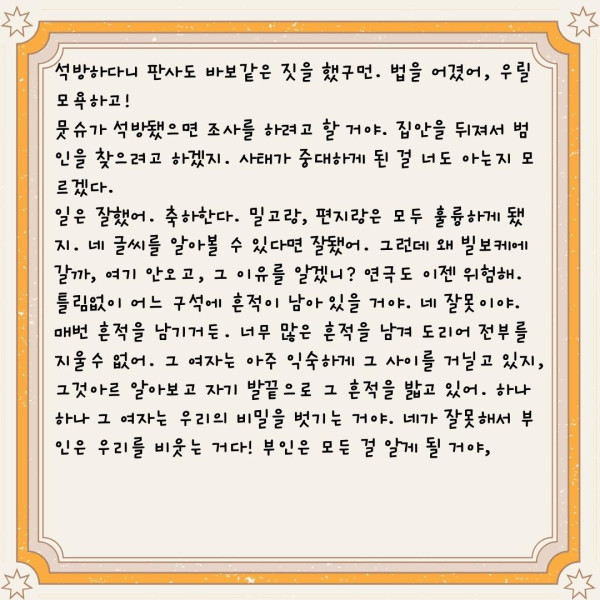 석방하다니 판사도 바보같은 짓을 했구먼. 법을 어겼어, 우릴
모욕하고!
뭇슈가 석방됐으면 조사를 하려고 할 거야. 집안을 뒤져서 범
인을 찾으려고 하겠지. 사태가 중대하게 된 걸 너도 아는지 모
르겠다.
일은 잘했어. 축하한다. 밀고랑, 편지랑은 모두 훌륭하게 됐
지. 네 글씨를 알아볼 수 있다면 잘됐어. 그런데 왜 빌보케에
갈까, 여기 안오고, 그 이유를 알겠니? 연극도 이젠 위험해.
틀림없이 어느 구석에 흔적이 남아 있을 거야. 네 잘못이야.
매번 흔적을 남기거든. 너무 많은 흔적을 남겨 도리어 전부를
지울수 없어. 그 여자는 아주 익숙하게 그 사이를 거닐고 있지,
그것아르 알아보고 자기 발끝으로 그 흔적을 밟고 있어. 하나
하나 그 여자는 우리의 비밀을 벗기는 거야. 네가 잘못해서 부
인은 우리를 비웃는 거다! 부인은 모든 걸 알게 될 거야,